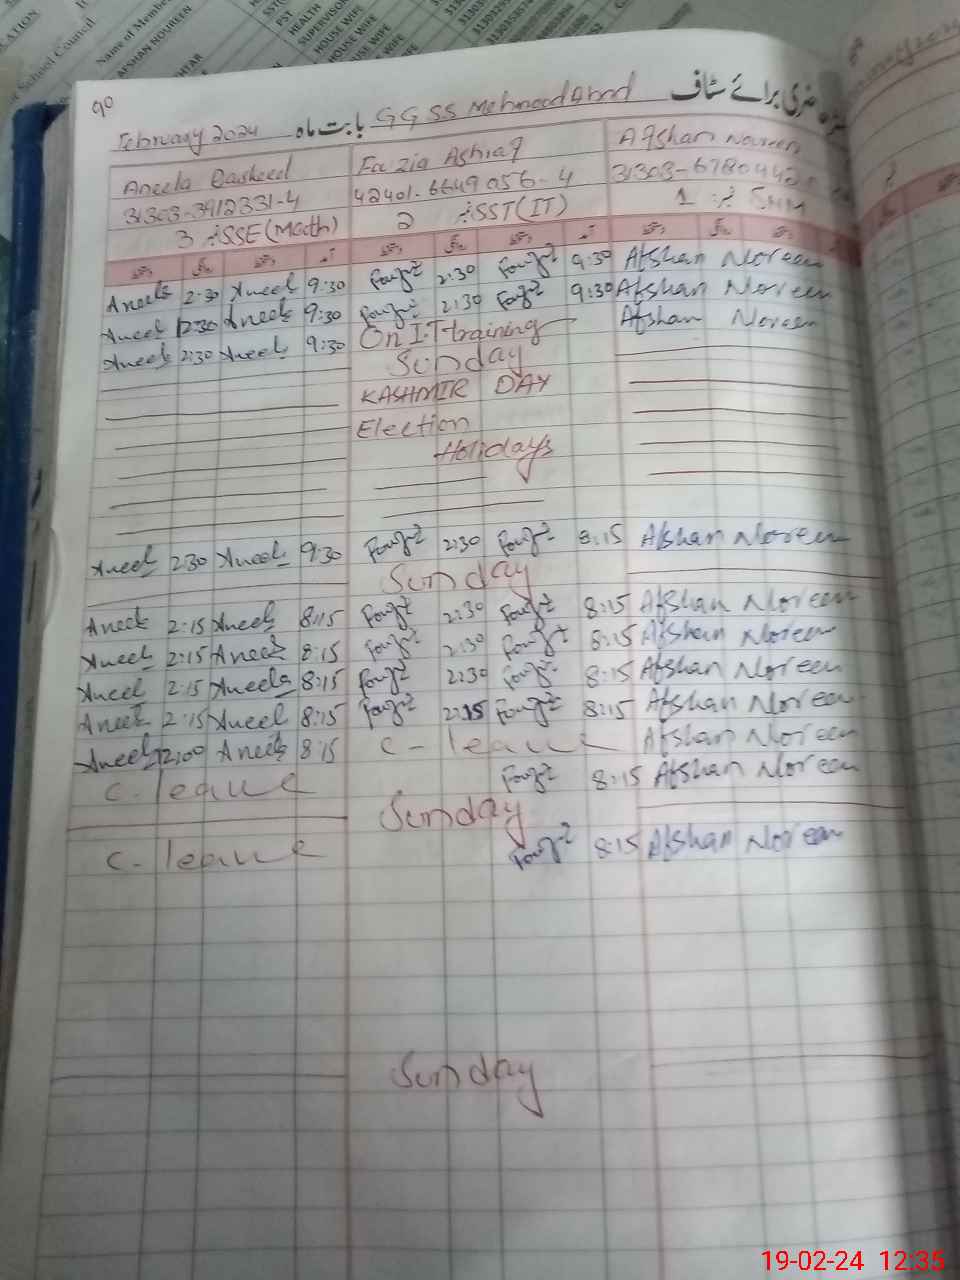 Name of Member
AFSHAN NOUREEN
HEALTH
SUPERVISOR
HOUSE WIFE
HOUSE WIFE
90
February 2024 بابت ماہ GGSS Mehmood Abad حاضری برائے سٹاف
Aneela Rasheed Fauzia Ashraf Afshan Noureen
31303-3912331-4 42401-6649056-4
3 نمبر SSE (Math) 2 نمبر SST (IT) 1 نمبر
Aneela 2:30 Aneela 9:30 Fauzia 2:30 Fauzia 9:30 Afshan Noreen
Aneela 2:30 Aneela 9:30 Fauzia 2:30 Fauzia 9:30 Afshan Noreen
Aneela 2:30 Aneela 9:30 On I.T training Afshan Noreen
Sunday
KASHMIR DAY
Election
Holidays
Aneela 2:30 Aneela 9:30 Fauzia 2:30 Fauzia 8:15 Afshan Noreen
Sunday
Aneela 2:15 Aneela 8:15 Fauzia 2:30 Fauzia 8:15 Afshan Noreen
Aneela 2:15 Aneela 8:15 Fauzia 2:30 Fauzia 8:15 Afshan Noreen
Aneela 2:15 Aneela 8:15 Fauzia 2:30 Fauzia 8:15 Afshan Noreen
Aneela 2:15 Aneela 8:15 Fauzia 2:15 Fauzia 8:15 Afshan Noreen
Aneela 12:00 Aneela 8:15 C-leave Afshan Noreen
C.leave Fauzia 8:15 Afshan Noreen
Sunday
C.leave Fauzia 8:15 Afshan Noreen
Sunday
19-02-24 12:35